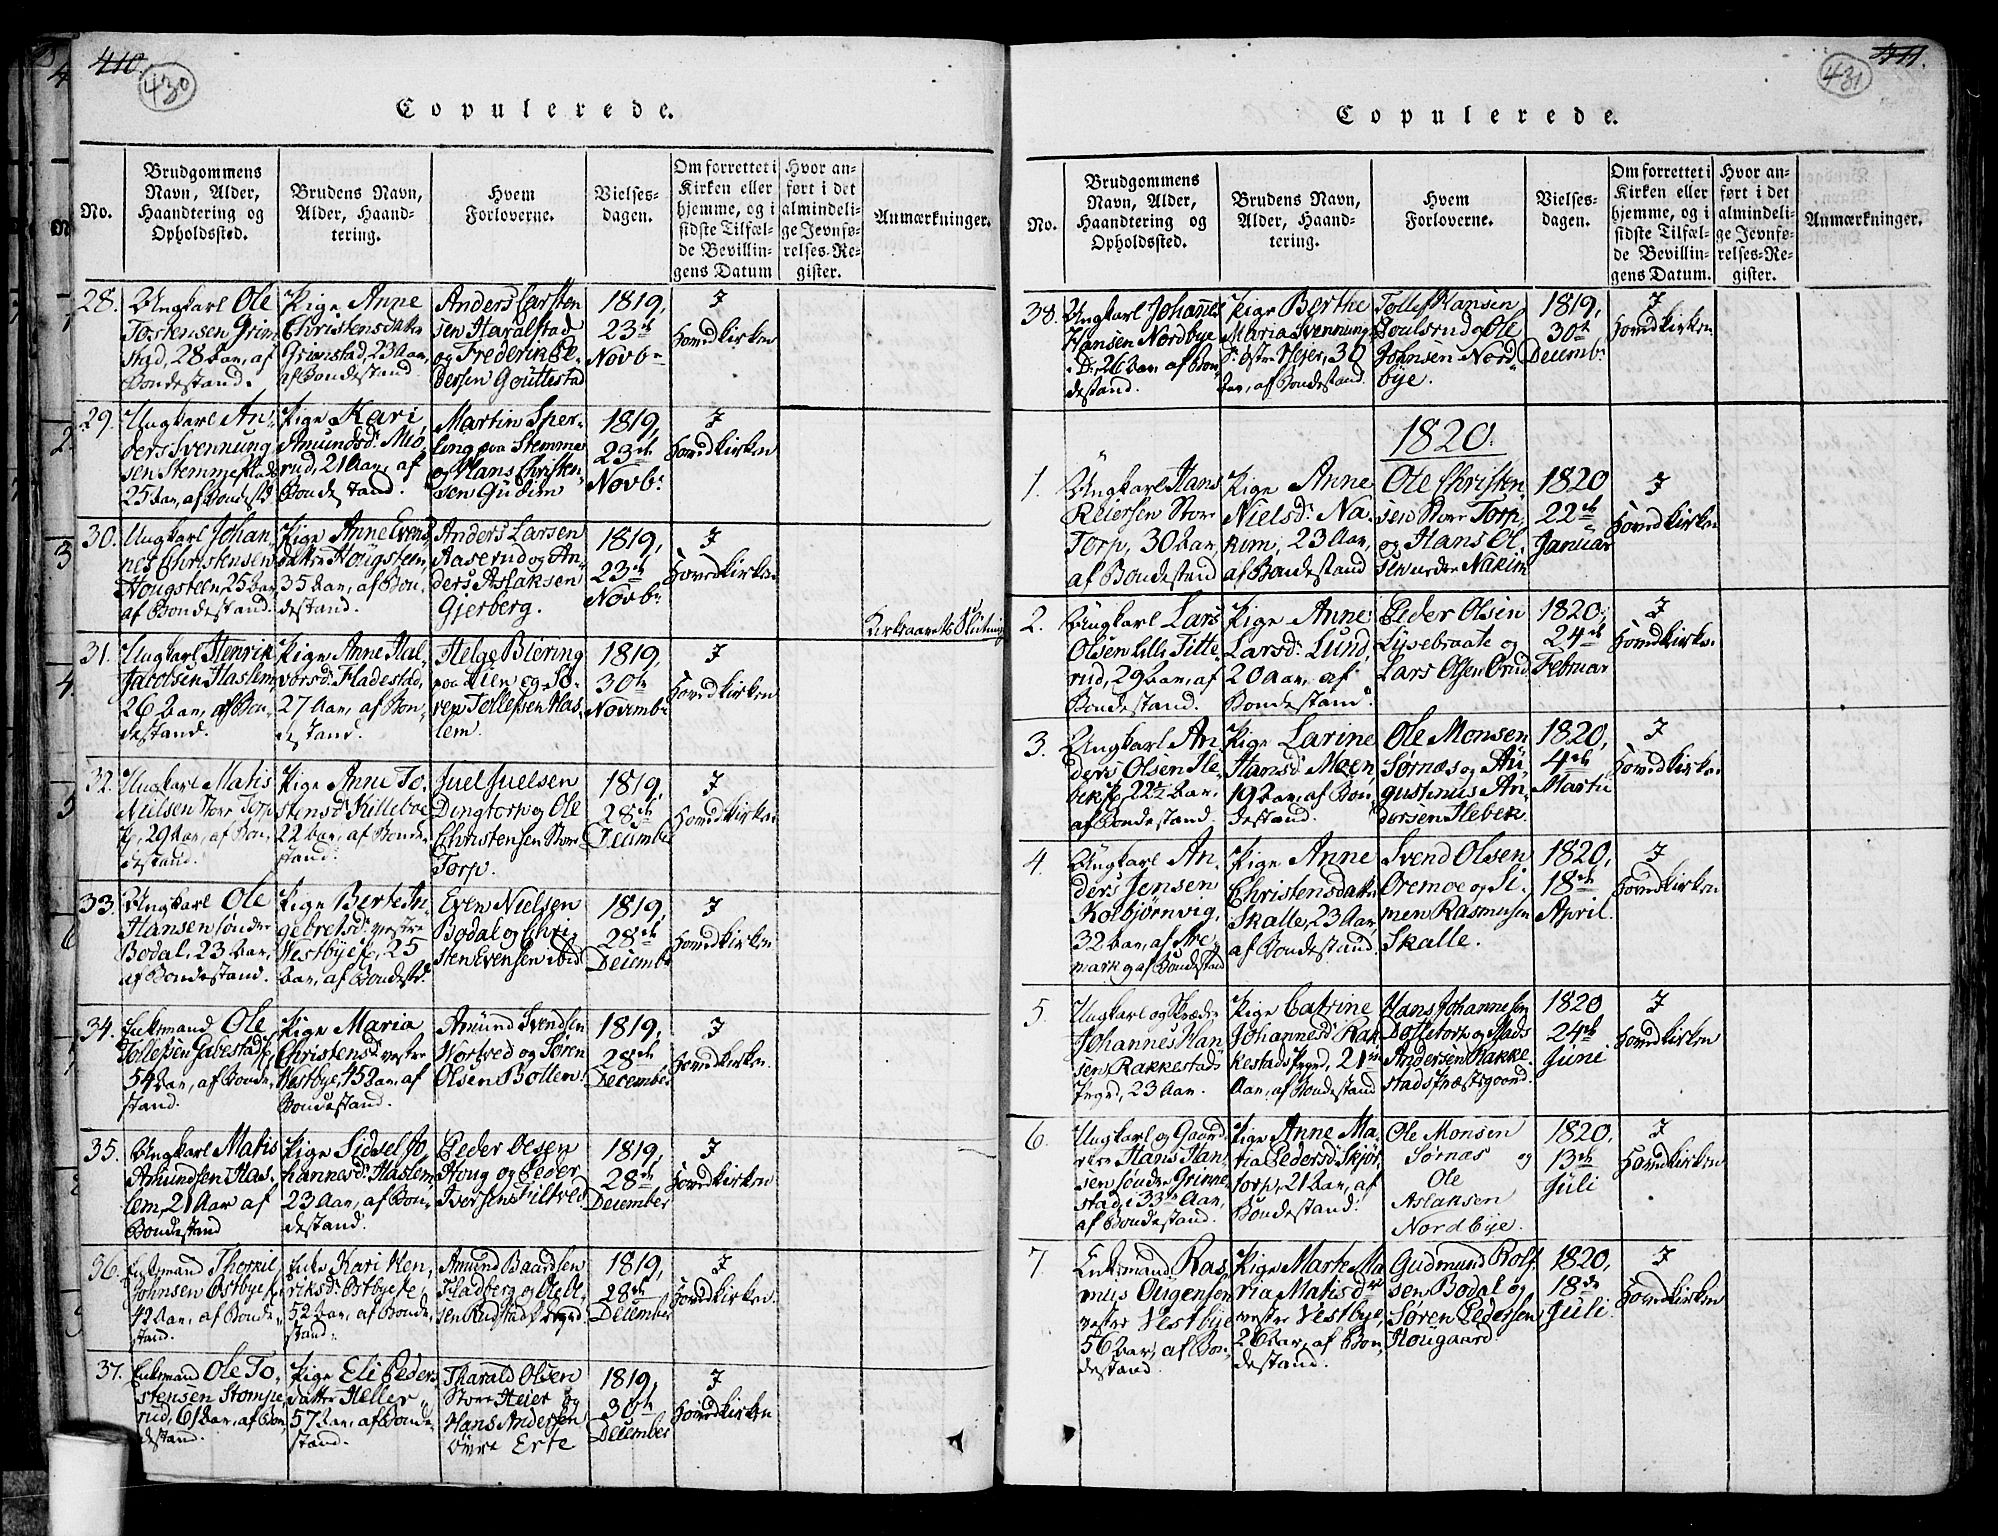 410.
430
Copulerede.
No.
Brudgommens
Navn, Alder,
Haandtering og
Opholdssted.
Brudens Navn,
Alder, Haand-
tering.
Hvem
Forloverne.
Vielses-
dagen.
Om forrettet i
Kirken eller
hjemme, og i
sidste Tilfæl-
de Bevillin-
gens Datum
Hvor an-
ført i det
almindeli-
ge Jevnfø-
relses-Re-
gister.
Anmærkninger.
28.
Ungkarl Ole
Tostensen Grim
stad, 28 Aar, af
Bondestand.
Pige Anne
Christensdatter
Grimstad, 23 Aar,
af Bondestand
Anders Carsten
sen Haralstad
og Frederik Pe
dersen Gouttestad
1819,
23de
Novbr
I
Hovedkirken
29.
Ungkarl An-
ders Svennung
sen Stemmestad
25 Aar, af Bondestd
Pige Kari
Amundsdr Mio
rud, 21 Aar, af
Bondestand.
Martin Sper-
ling paa Stemme
og Hans Christen
sen Gudim
1819,
23de
Novbr
I
Hovedkirken
30.
Ungkarl Johan-
nes Christensen
Hougsteen, 25 Aar
af Bondestand.
Pige Anne Evens
datter Hougsteen
35 Aar, af Bon-
destand.
Anders Larsen
Aaserud og An-
ders Aslaksen
Gjerberg.
1819,
23de
Novbr
I
Hovedkirken
Kirkeaarets Slutning
31.
Ungkarl Henrik
Jacobsen Haslem
26 Aar, af Bon-
destand.
Pige Anne Hal-
vorsdr Fladestad,
27 Aar, af Bon-
destand.
Helge Biering
paa Lien og Sø-
ren Tollefsen Has-
lem.
1819,
30te
Novembr
I
Hovedkirken
32.
Ungkarl Matis
Nielsen Store Torp
29 Aar, af Bon-
destand.
Pige Anne To-
stensdr Killeboe
22 Aar, af Bonde-
stand.
Juel Juelsen
Dingtorp og Ole
Christensen Store
Torp.
1819,
28de
December
I
Hovedkirken
33.
Ungkarl Ole
Hansen søndre
Bodal, 23 Aar,
af Bondestand.
Pige Berte In-
gebretsdr vestre
Westbye, 25
Aar, af Bondestd.
Even Nielsen
Bodal og Chri-
sten Evensen ibid
1819,
28de
Decembr
I
Hovedkirken
34.
Enkemand Ole
Tollefsen Gabestad,
54 Aar, af Bonde-
stand.
Pige Maria
Christensdr vestre
Westbye, 45 Aar, af
Bondestand.
Amund Svendsen
Wortved og Søren
Olsen Bollen
1819,
28de
December
I
Hovedkirken
35.
Ungkarl Matis
Amundsen Has-
lem, 21 Aar af
Bondestand
Pige Sidsel Jo
hannesdr Haslem
23 Aar, af Bon-
destand.
Peder Olsen
Houg og Peder
Iversen Filtved
1819,
28de
December
I
Hovedkirken
36.
Enkemand Thorkil
Johnsen Østbye,
42 Aar, af Bonde-
stand.
Enke Kari Hen-
riksdr Østbye
52 Aar, af Bonde-
stand.
Amund Baardsen
Fladberg og Ole
1819,
28de
December
I
Hovedkirken
37.
Enkemand Ole To-
stensen Stompe
rud, 61 Aar, af Bon
destand.
Pige Eli Peders
datter Heller
57 Aar, af Bonde-
stand.
Tharald Olsen
Store Heier og
Hans Andersen
Øvre Erte
1819,
30te
December
I
Hovedkirken
411.
431
Copulerede.
No.
Brudgommens
Navn, Alder,
Haandtering og
Opholdssted.
Brudens Navn,
Alder, Haand-
tering.
Hvem
Forloverne.
Vielses-
dagen.
Om forrettet i
Kirken eller
hjemme, og i
sidste Tilfæl-
de Bevillin-
gens Datum.
Hvor an-
ført i det
almindeli-
ge Jevnfø-
relses-Re-
gister.
Anmærkninger.
38.
Ungkarl Johannes
Hansen Nordbye
26 Aar af Bon-
destand.
Pige Berthe
Maria Svennungs
dr østre Hejer, 30
Aar, af Bondestand.
Tollef Hansen
Poulsrud og Ole
Johnsen Nord-
bye.
1819,
30te
Decembr
I
Hovedkirken
1820.
1.
Ungkarl Hans
Reiersen Store
Torp, 30 Aar,
af Bondestand
Pige Anne
Nielsdr Na-
kim, 23 Aar,
af Bondestand
Ole Christen-
sen Store Torp,
og Hans Ol-
sen nedre Nakim
1820
22de
Januar
I
Hovedkirken
2.
Ungkarl Lars
Olsen lille Titte-
rud, 29 Aar, af
Bondestand.
Pige Anne
Larsdr Lund,
20 Aar, af
Bondestand.
Peder Olsen
Lysebraate og
Lars Olsen Ørud
1820,
24de
Februar
I
Hovedkirken
3.
Ungkarl An-
ders Olsen Ile-
bek, 22½ Aar,
af Bondestand.
Pige Larine
Hansdr Moen
19 Aar, af Bon-
destand.
Ole Monsen
Sørnæs og Au-
gustinus An-
dersen Ilebek.
1820,
4de
Martii
I
Hovedkirken
4.
Ungkarl An-
ders Jensen
Kolbjørnvig,
32 Aar, af Are-
mark og af Bondestand
Pige Anne
Christensdatter
Skalle, 23 Aar,
af Bondestand.
Svend Olsen
Oremoe og Si-
men Rasmusen
Skalle.
1820,
18de
April.
I
Hovedkirken
5.
Ungkarl og Skræder
Johannes Han
sen Rakkestads
Prgrd, 23 Aar.
Pige Catrine
Johannesdr Rak-
kestads Prgrd, 21
Aar, af Bondestand
Hans Johannesen
Dolletorp og Mads
Andersen Rakke-
stads Præstegaard.
1820
24de
Juni
I
Hovedkirken
6.
Ungkarl og Gaard-
ere Hans Han-
sen søndre Grimme-
stad, i 33te Aar,
af Bondestand.
Pige Anne Ma-
ria Pedersdr Skjør-
torp, 21 Aar, af
Bondestand.
Ole Monsen
Sørnæs og
Ole
Aslaksen
Nordbye.
1820,
13de
Juli
I
Hovedkirken
7.
Enkemand Ras-
mus Oligensen
vestre Vestbye
56 Aar, af Bon-
destand.
Pige Marte Ma-
ria Matisdr
vestre Vestbye,
26 Aar, af Bon-
destand.
Gudmund Rolf-
sen Bodal og
Søren Pedersen
Hougaard
1820,
18de
Juli.
I
Hovedkirken